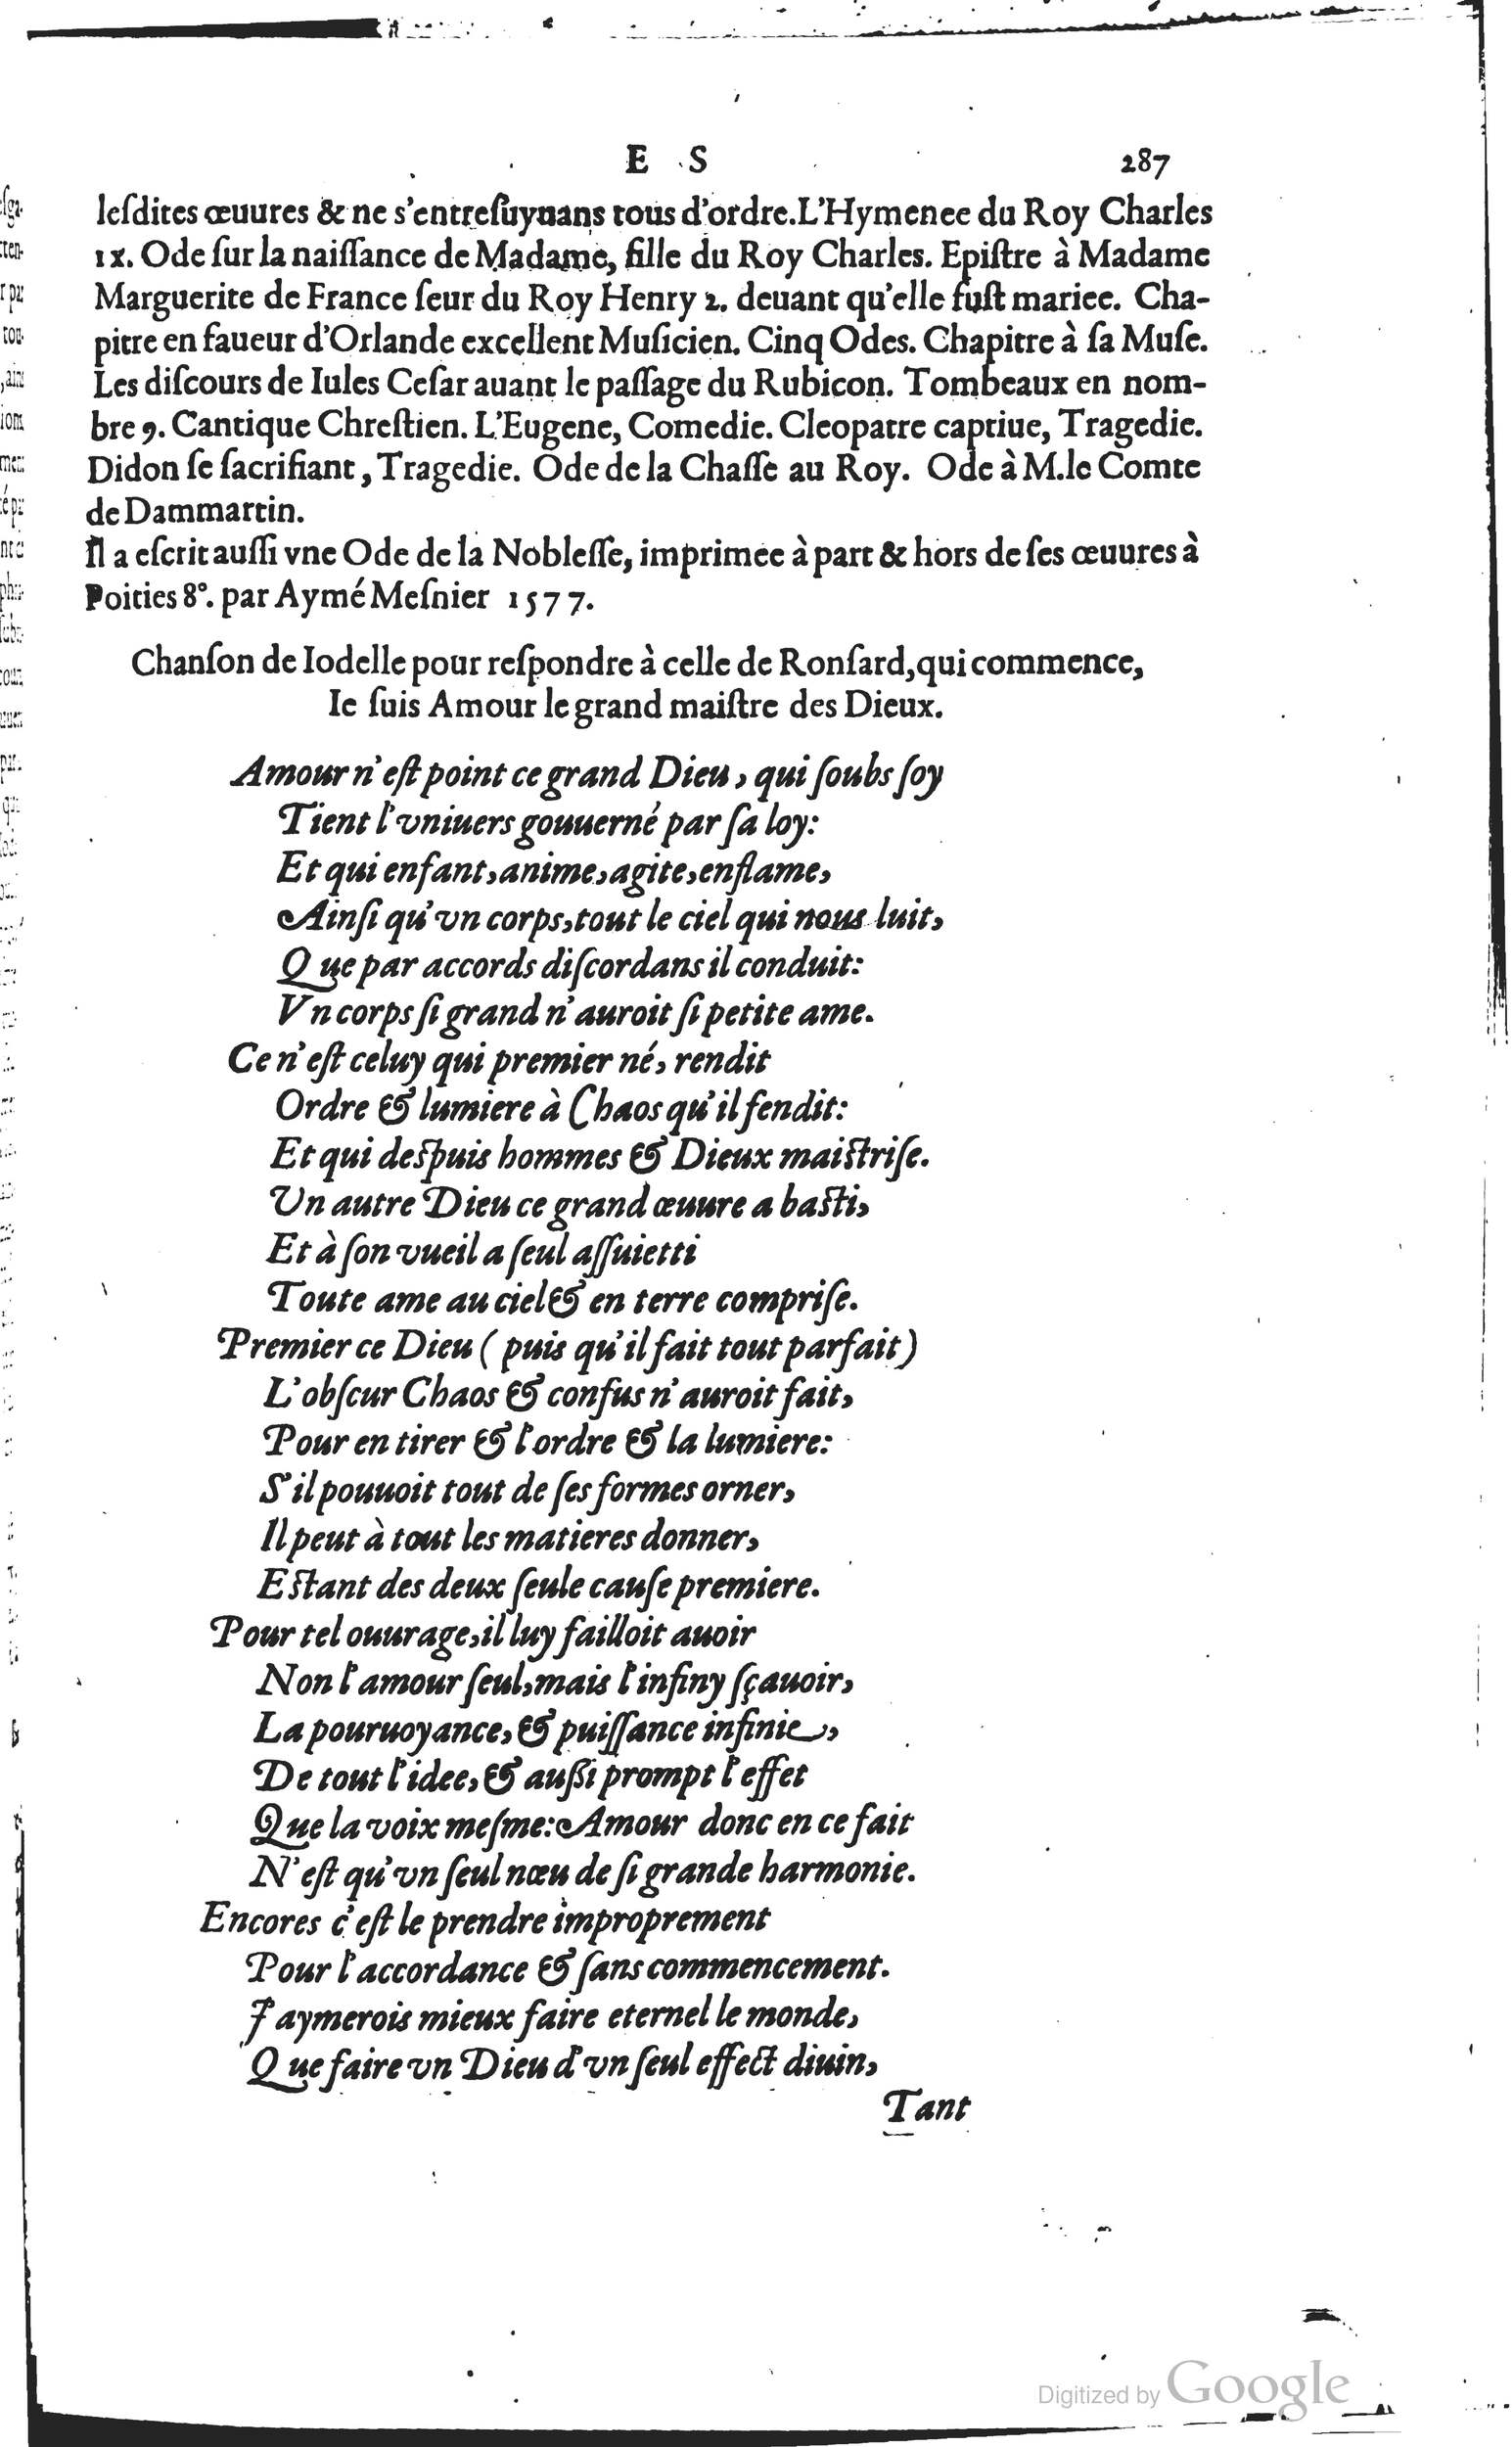 E S 287
leſdites œuures & ne s'entreſuyuans tous d'ordre. L'Hymenee du Roy Charles
IX. Ode ſur la naiſſance de Madame, fille du Roy Charles. Epiſtre à Madame
Marguerite de France ſeur du Roy Henry 2. deuant qu'elle fuſt mariee. Cha-
pitre en faueur d'Orlande excellent Muſicien. Cinq Odes. Chapitre à ſa Muſe.
Les diſcours de Iules Ceſar auant le paſſage du Rubicon. Tombeaux en nom-
bre 9. Cantique Chreſtien. L'Eugene, Comedie. Cleopatre captiue, Tragedie.
Didon ſe ſacrifiant, Tragedie. Ode de la Chaſſe au Roy. Ode à M. le Comte
de Dammartin.
Il a eſcrit auſſi vne Ode de la Nobleſſe, imprimee à part & hors de ſes œuures à
Poities 8°. par Aymé Meſnier 1577.
Chanſon de Iodelle pour reſpondre à celle de Ronſard, qui commence,
Ie ſuis Amour le grand maiſtre des Dieux.
Amour n'eſt point ce grand Dieu, qui ſoubs ſoy
Tient l'vniuers gouuerné par ſa loy:
Et qui enfant, anime, agite, enflame,
Ainſi qu'vn corps, tout le ciel qui nous luit,
Que par accords diſcordans il conduit:
Vn corps ſi grand n'auroit ſi petite ame.
Ce n'eſt celuy qui premier né, rendit
Ordre & lumiere à Chaos qu'il fendit:
Et qui deſpuis hommes & Dieux maiſtriſe.
Un autre Dieu ce grand œuure a baſti,
Et à ſon vueil a ſeul aſſuietti
Toute ame au ciel & en terre compriſe.
Premier ce Dieu (puis qu'il fait tout parfait)
L'obſcur Chaos & confus n'auroit fait,
Pour en tirer & l'ordre & la lumiere:
S'il pouuoit tout de ſes formes orner,
Il peut à tout les matieres donner,
Eſtant des deux ſeule cauſe premiere.
Pour tel ouurage, il luy failloit auoir
Non l'amour ſeul, mais l'infiny ſçauoir,
La pouruoyance, & puiſſance infinie,
De tout l'idee, & auſſi prompt l'effet
Que la voix meſme: Amour donc en ce fait
N'eſt qu'vn ſeul nœu de ſi grande harmonie.
Encores c'eſt le prendre improprement
Pour l'accordance & ſans commencement.
J'aymerois mieux faire eternel le monde,
Que faire vn Dieu d'vn ſeul effect diuin,
Tant
Digitized by Google